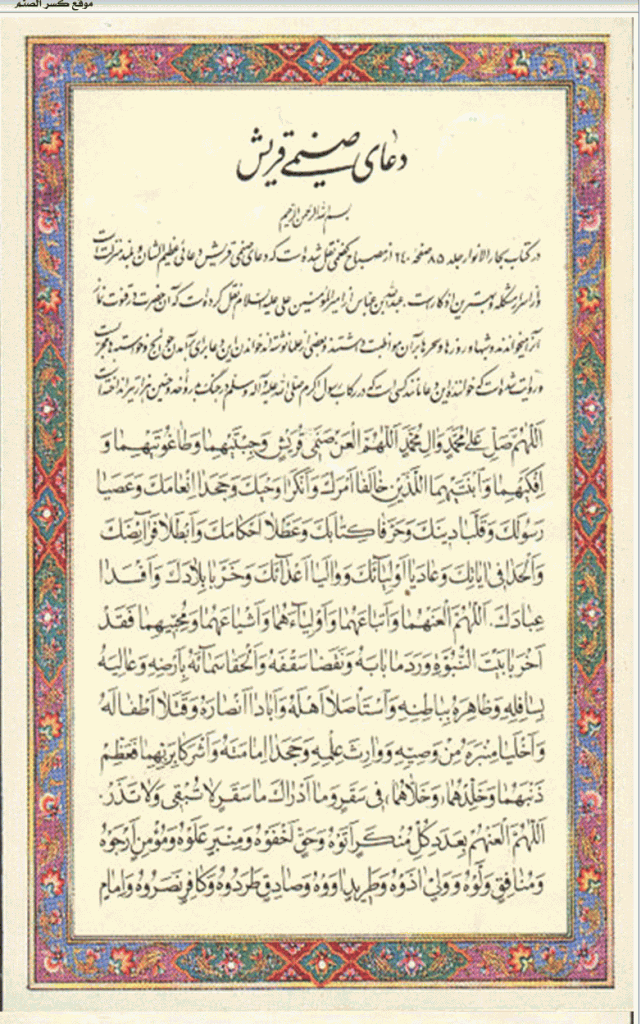 موقع كسر الصنم
دعای صنمی قریش
بسم الله الرحمن الرحیم
در کتاب بحار الانوار جلد ۸۵ صفحهٔ ۲۴۰ از مصباح کفعمی نقل شده است که دعای صنمی قریش دعائی عظیم الشان و بلند منزلت است
و از اسرار مشکله و بهترین اذکار است. عبدالله بن عباس از امیر المؤمنین علی علیه السلام نقل کرده است که آن حضرت در قنوت نماز
آنرا میخواندند و شبها و روزها و سحرها بر آن مواظبت داشتند و بعضی از علما نوشته‌اند خواندن این دعا برای برآمدن حوائج و خواسته‌ها مجرب است
و روایت شده است که خواننده این دعا مانند کسی است که در رکاب رسول اکرم صلی الله علیه و آله و سلم در جنگ بدر و احد و حنین هزار تیر انداخته است
اَللّٰهُمَّ صَلِّ عَلٰی مُحَمَّدٍ وَآلِ مُحَمَّدٍ اَللّٰهُمَّ الْعَنْ صَنَمَیْ قُرَیْشٍ وَجِبْتَیْهِمٰا وَطٰاغُوتَیْهِمٰا وَ
اِفْکَیْهِمٰا وَابْنَتَیْهِمَا اللَّذَیْنِ خٰالَفٰا اَمْرَکَ وَاَنْکَرٰا وَحْیَکَ وَجَحَدٰا اِنْعٰامَکَ وَعَصَیٰا
رَسُولَکَ وَقَلَّبٰا دِینَکَ وَحَرَّفٰا کِتٰابَکَ وَعَطَّلٰا اَحْکٰامَکَ وَاَبْطَلٰا فَرٰائِضَکَ
وَاَلْحَدٰا فِی اٰیٰاتِکَ وَعٰادَیٰا اَوْلِیٰآئَکَ وَوٰالَیٰا اَعْدٰآئَکَ وَخَرَّبٰا بِلٰادَکَ وَاَفْسَدٰا
عِبٰادَکَ. اَللّٰهُمَّ الْعَنْهُمٰا وَاَتْبٰاعَهُمٰا وَاَوْلِیٰآءَهُمٰا وَاَشْیٰاعَهُمٰا وَمُحِبِّیهِمٰا فَقَدْ
اَخْرَبٰا بَیْتَ النُّبُوَّةِ وَرَدَمٰا بٰابَهُ وَنَقَضٰا سَقْفَهُ وَاَلْحَقٰا سَمٰآئَهُ بِاَرْضِهِ وَعٰالِیَهُ
بِسٰافِلِهِ وَظٰاهِرَهُ بِبٰاطِنِهِ وَاسْتَأْصَلٰا اَهْلَهُ وَاَبٰادٰا اَنْصٰارَهُ وَقَتَلٰا اَطْفٰالَهُ
وَاَخْلَیٰا مِنْبَرَهُ مِنْ وَصِیِّهِ وَوٰارِثِ عِلْمِهِ وَجَحَدٰا اِمٰامَتَهُ وَاَشْرَکٰا بِرَبِّهِمٰا فَعَظِّمْ
ذَنْبَهُمٰا وَخَلِّدْهُمٰا، (وَخَلَّاهُمٰا) فِی سَقَرَ وَمٰا اَدْرٰاکَ مٰا سَقَرُ لٰا تُبْقِی وَلٰا تَذَرُ.
اَللّٰهُمَّ الْعَنْهُمْ بِعَدَدِ کُلِّ مُنْکَرٍ اَتَوْهُ وَحَقٍّ اَخْفَوْهُ وَمِنْبَرٍ عَلَوْهُ وَمُؤْمِنٍ اَرْجَوْهُ
وَمُنٰافِقٍ وَلَّوْهُ وَوَلِیٍّ اٰذَوْهُ وَطَرِیدٍ اٰوَوْهُ وَصٰادِقٍ طَرَدُوهُ وَکٰافِرٍ نَصَرُوهُ وَاِمٰامٍ